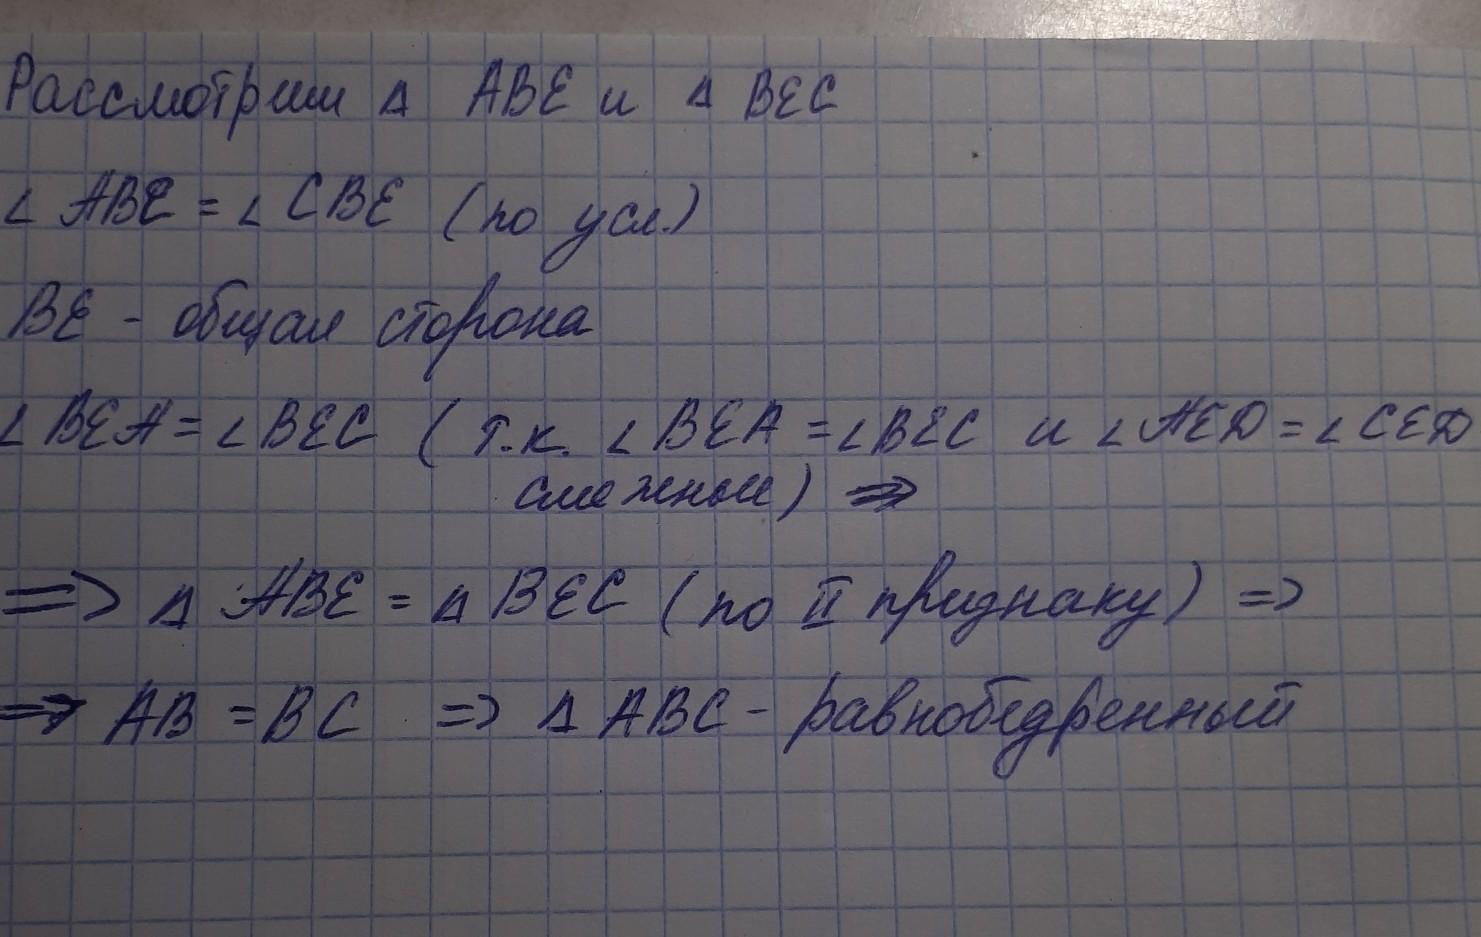 Рассмотрим Δ ABE и Δ BEC
∠ ABE = ∠ CBE (по усл.)
BE - общая сторона
∠ BEA = ∠ BEC (т.к. ∠ BEA = ∠ BEC и ∠ AED = ∠ CED
смежные) =>
=> Δ ABE = Δ BEC (по II признаку) =>
=> AB = BC => Δ ABC - равнобедренный